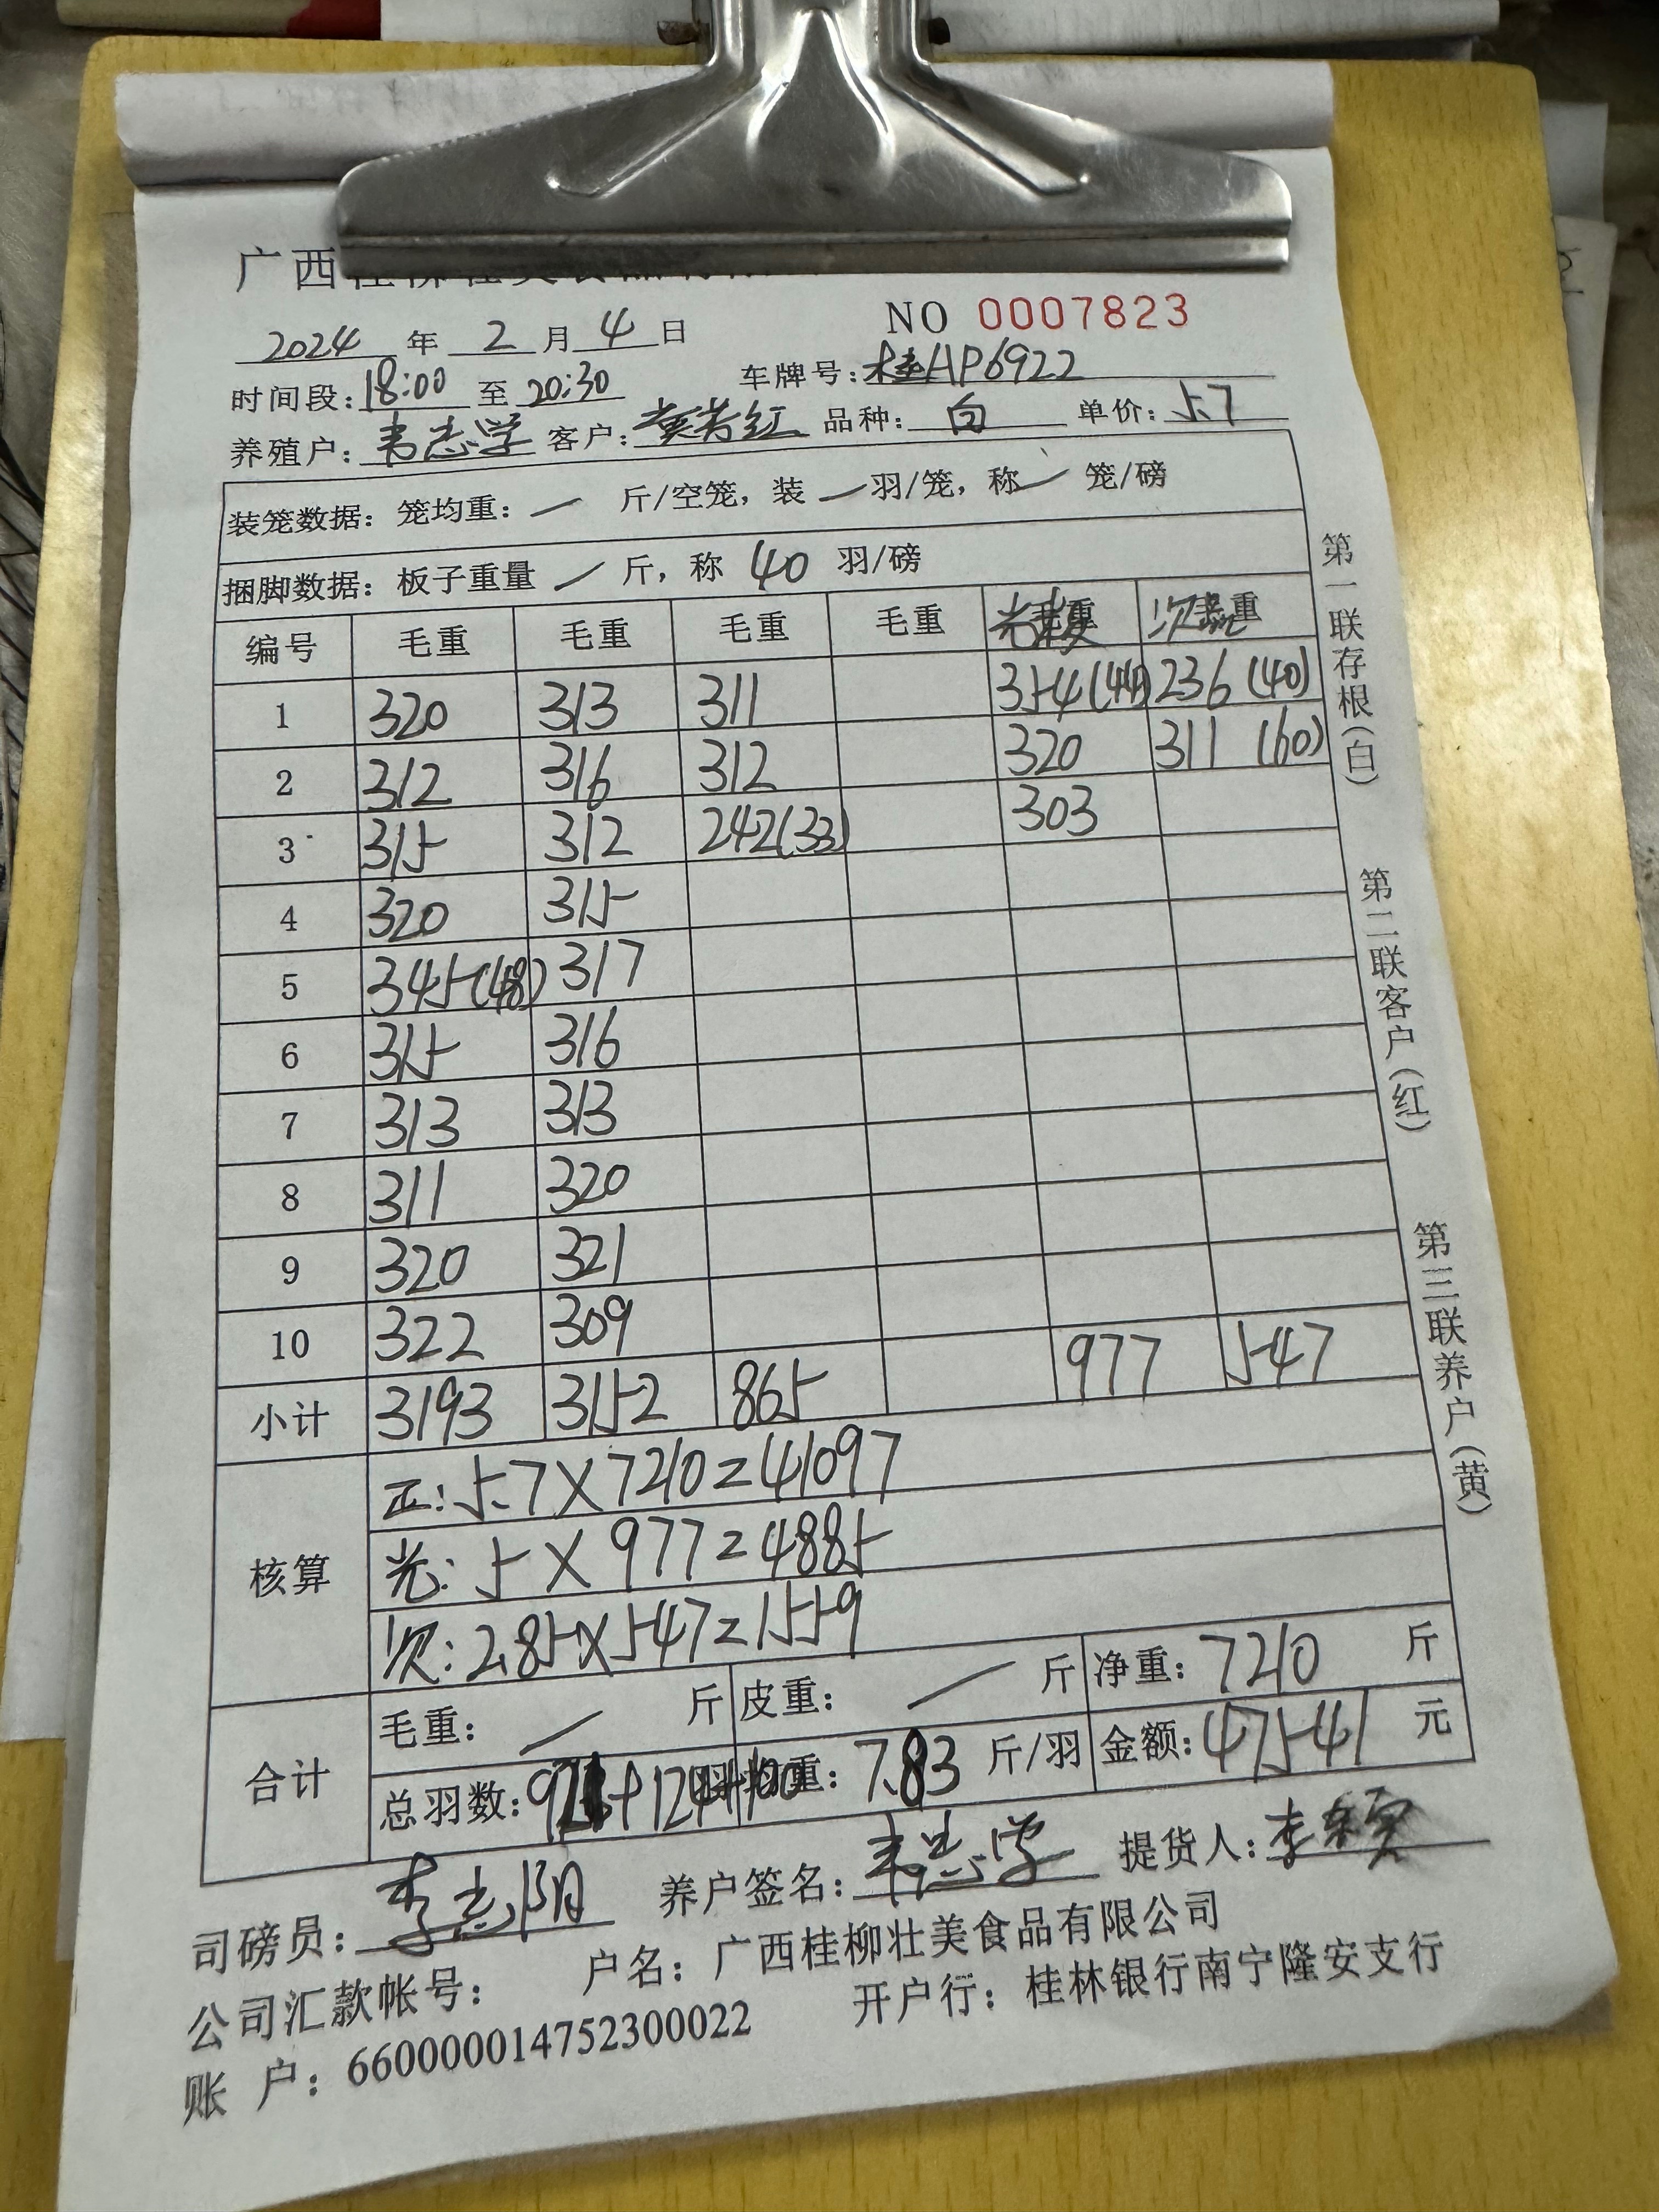 广西
NO 0007823
2024 年 2 月 4 日
时间段: 18:00 至 20:30 车牌号: 桂HP6922
养殖户: 韦志学 客户: 黄芳红 品种: 白 单价: 5.7
装笼数据: 笼均重: / 斤/空笼, 装 / 羽/笼, 称 / 笼/磅
捆脚数据: 板子重量 / 斤, 称 40 羽/磅
编号 毛重 毛重 毛重 毛重 光 重 次 重
1 320 313 311 354(44) 236(40)
2 312 316 312 320 311(60)
3 315 312 242(33) 303
4 320 315
5 345(48) 317
6 315 316
7 313 313
8 311 320
9 320 321
10 322 309
小计 3193 3152 865 977 547
核算
正: 5.7×7210=41097
光: 5×977=4885
次: 2.85×547=1559
合计
毛重: / 斤 皮重: / 斤 净重: 7210 斤
总羽数: +124+100 均重: 7.83 斤/羽 金额: 47541 元
司磅员: 李志阳 养户签名: 韦志学 提货人: 李
公司汇款帐号: 户名: 广西桂柳壮美食品有限公司
账 户: 660000014752300022 开户行: 桂林银行南宁隆安支行
第一联存根(白)
第二联客户(红)
第三联养户(黄)